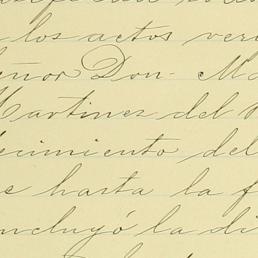 los actos veri
eñor Don. Ma
Martinez del
ecimiento del
e hasta la f
ncluyó la di